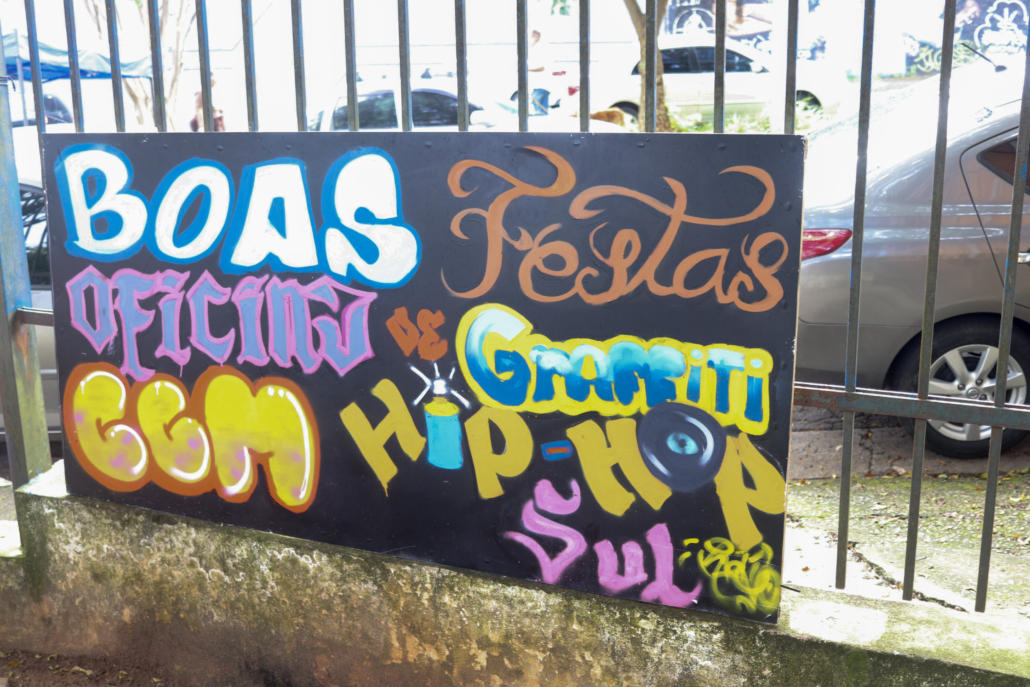 BOAS Festas
OFICINA DE GRAFFITI
CCM HiP-HOP
SUL